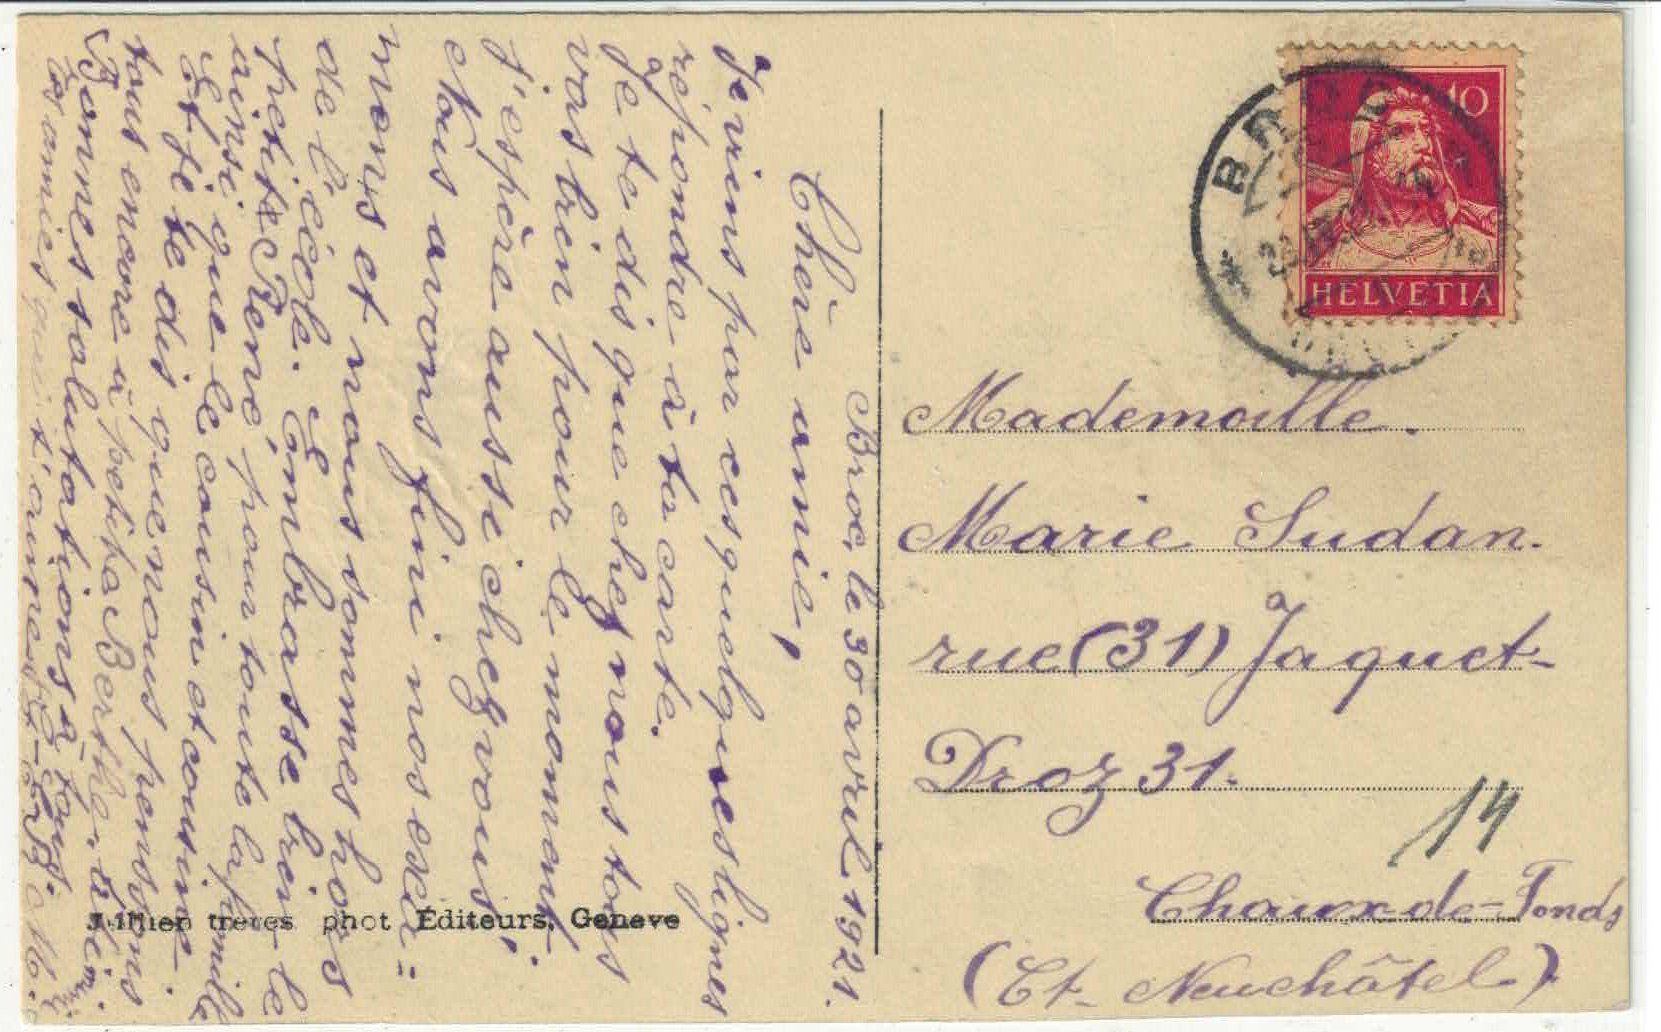 Broc, le 30 avril 1921.
Chère amie,
Je viens par ces quelques lignes
répondre à ta carte.
Je te dis que chez nous tous
vas bien pour le moment.
J'espère aussi chez vous.
et ous avons fini nos exa-
mens et nous sommes hors
de l'école. Embrasse bien le
petit René pour toute la famille
ainsi que le cousin et cousine.
Et je te dis que nous pensons
tous encore à petite Berthe.
Bonnes salutations à tous.
tes amies qui t'aime
Jullien freres phot Éditeurs, Geneve
10
HELVETIA
BROC
Mademoille.
Marie Sudan.
rue (31) Jaquet-
Droz 31.
14
Chaux-de-Fonds
(Ct. Neuchâtel.)